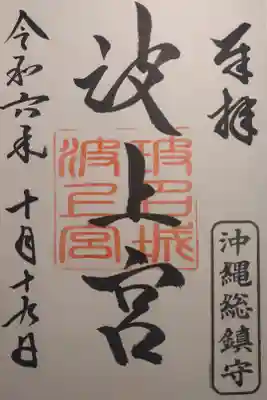 奉拝
沖縄総鎮守
波上宮
波上宮
令和六年十月十九日